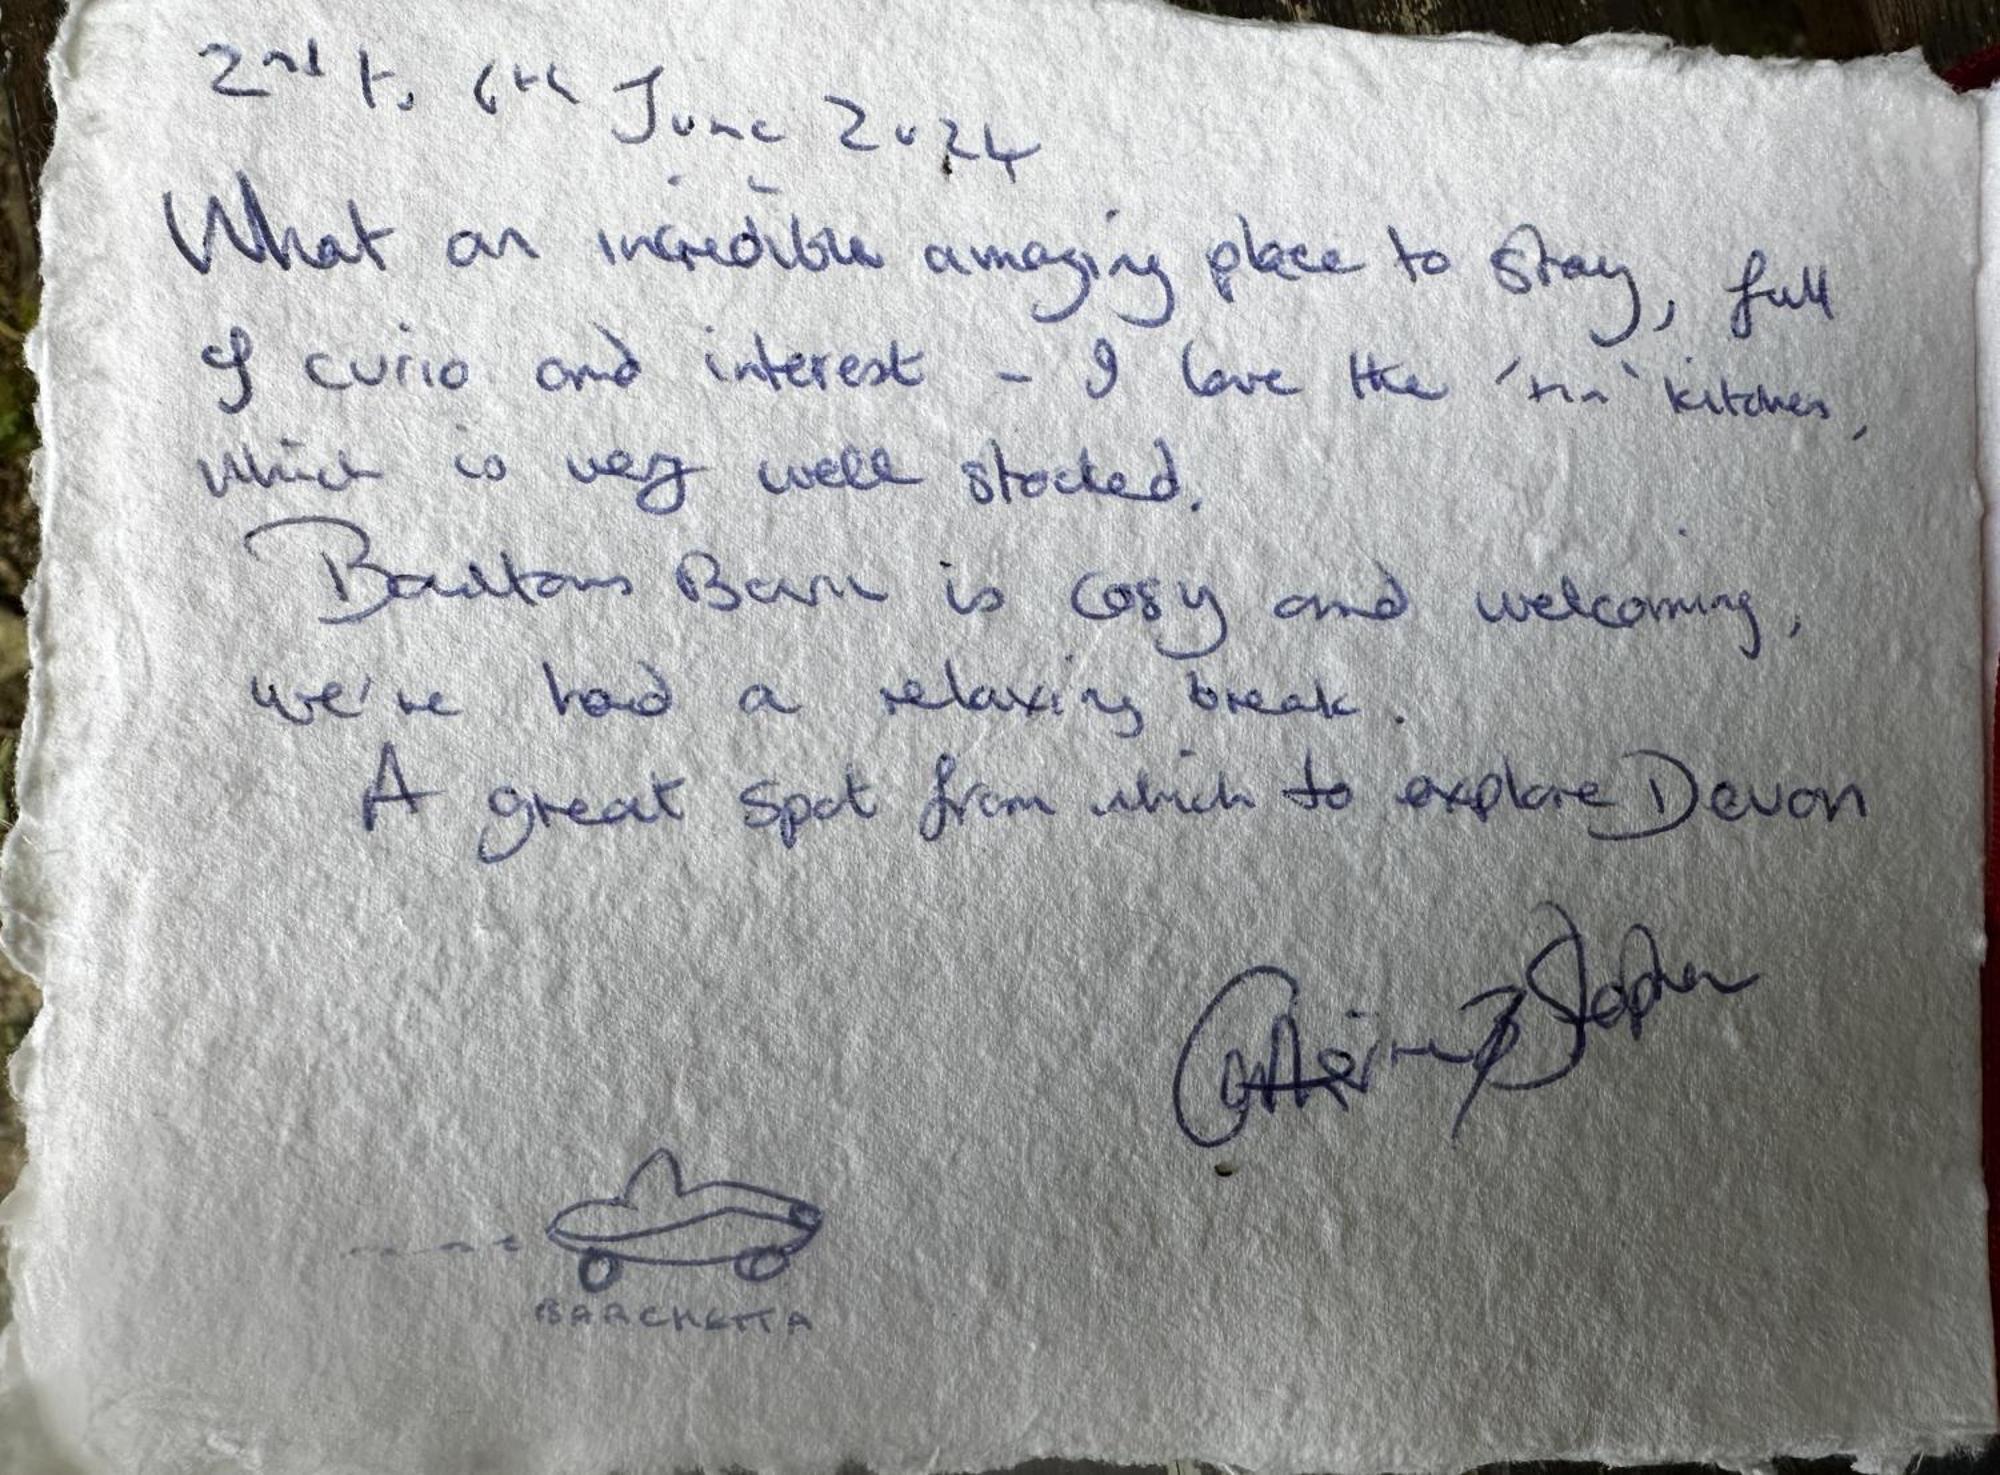 2nd to 6th June 2024
What an incredible amazing place to stay, full
of curio and interest - I love the 'tin' kitchen,
which is very well stocked.
Barn is cosy and welcoming,
we've had a relaxing break.
A great spot from which to explore Devon
Catherine & Stephen
BARCHETTA